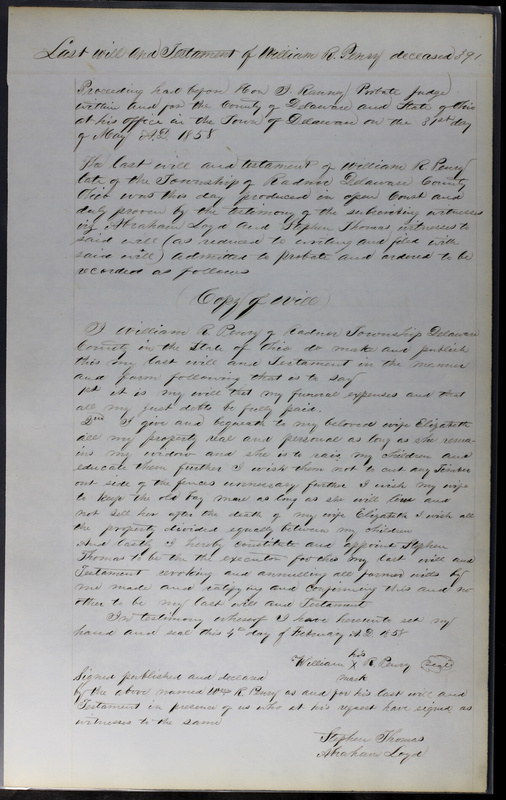 Last will and Testament of William R. Penry deceased 391
Proceeding had before Hon T. Ranney Probate Judge
within and for the County of Delaware and State of Ohio
at his office in the Town of Delaware on the 31st day
of May A.D. 1858
The last will and testament of William R Penry
late of the Township of Radnor Delaware County
Ohio was this day produced in open Court and
duly proven by the testimony of the subscribing witnesses
viz Abraham Loyd and Stephen Thomas witnesses to
said will (as reduced to writing and filed with
said will) admitted to probate and ordered to be
recorded as follows
(Copy of Will)
I William R Penry of Radnor Township Delaware
County in the State of Ohio do make and publish
this my last will and Testament in the manner
and form following that is to say
1st it is my will that my funeral expenses and that
all my just debts be fully paid.
2nd I give and bequeath to my beloved wife Elizabeth
all my property real and personal as long as she remai-
ins my widow and she is to raise my children and
educate them further I wish them not to cut any Timber
out side of the fences unnecessary further I wish my wife
to keep the old bay mare as long as she will live and
not sell her after the death of my wife Elizabeth I wish all
the property divided equally between my children
And lastly I hereby constitute and appoint Stephen
Thomas to be the the executor for this my last will and
Testament revoking and annulling all former wills by
me made and ratifying and confirming this and no
other to be my last will and Testament
In testimony whereof I have hereunto set my
hand and seal this 4th day of February A.D. 1858
his
William X R Penry (seal)
mark
Signed published and declared
by the above named Wm R Penry as and for his last will and
Testament in presence of us who at his request have signed as
witnesses to the same
Stephen Thomas
Abraham Loyd